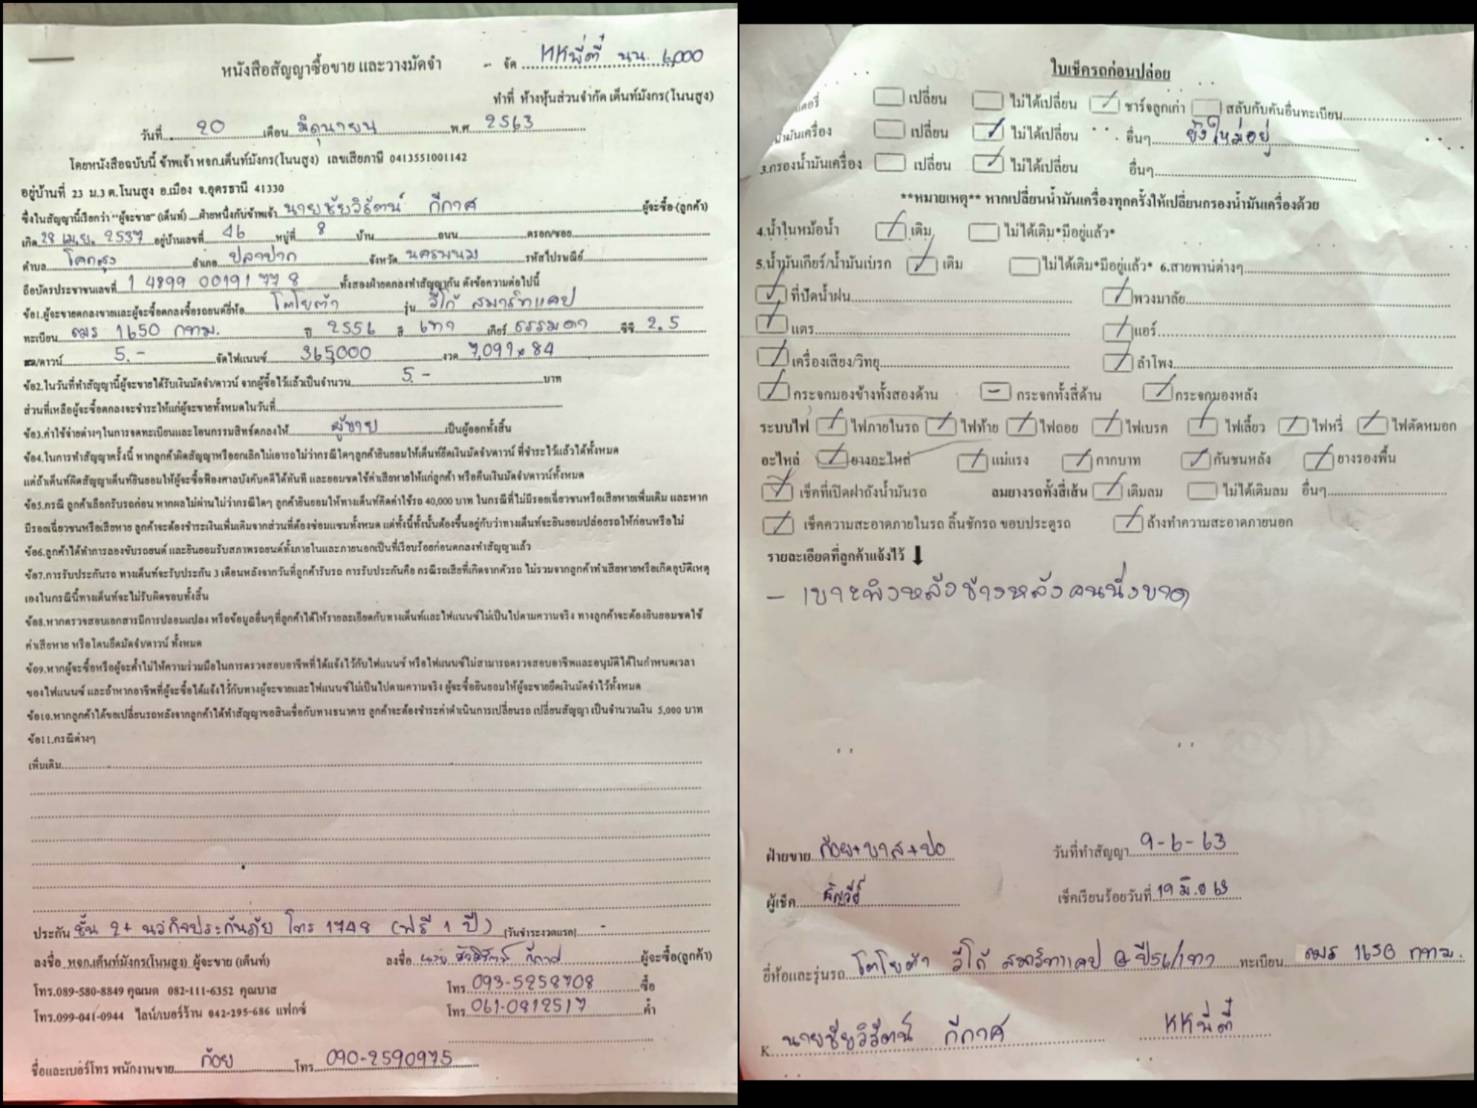 หนังสือสัญญาซื้อขาย และวางมัดจำ - จัด KKพี่ตี๋ นน. 6,000
ทำที่ ห้างหุ้นส่วนจำกัด เต็นท์มังกร(โนนสูง)
วันที่ 20 เดือน มิถุนายน พ.ศ 2563
โดยหนังสือฉบับนี้ ข้าพเจ้า หจก.เต็นท์มังกร(โนนสูง) เลขเสียภาษี 0413551001142
อยู่บ้านที่ 23 ม.3 ต.โนนสูง อ.เมือง จ.อุดรธานี 41330
ซึ่งในสัญญานี้เรียกว่า "ผู้จะขาย" (เต็นท์) ฝ่ายหนึ่งกับข้าพเจ้า นายชัยวิรัตน์ กีกาศ ผู้จะซื้อ (ลูกค้า)
เกิด 28 เม.ย. 2537 อยู่บ้านเลขที่ 46 หมู่ที่ 8 บ้าน ถนน ตรอก/ซอย
ตำบล โคกสูง อำเภอ ปลาปาก จังหวัด นครพนม รหัสไปรษณีย์
ถือบัตรประชาชนเลขที่ 1 4899 00191 77 8 ทั้งสองฝ่ายตกลงทำสัญญากัน ดังข้อความต่อไปนี้
ข้อ1.ผู้จะขายตกลงขายและผู้จะซื้อตกลงซื้อรถยนต์ยี่ห้อ โตโยต้า รุ่น วีโก้ สมาร์ทแคป
ทะเบียน ฒร 1650 กทม. ปี 2556 สี เทา เกียร์ ธรรมดา ซีซี 2.5
สด/ดาวน์ 5.- จัดไฟแนนซ์ 365,000 งวด 7,097 x 84
ข้อ2.ในวันที่ทำสัญญานี้ผู้จะขายได้รับเงินมัดจำ/ดาวน์ จากผู้ซื้อไว้แล้วเป็นจำนวน 5.- บาท
ส่วนที่เหลือผู้จะซื้อตกลงจะชำระให้แก่ผู้จะขายทั้งหมดในวันที่
ข้อ3.ค่าใช้จ่ายต่างๆในการจดทะเบียนและโอนกรรมสิทธิ์ตกลงให้ ผู้ขาย เป็นผู้ออกทั้งสิ้น
ข้อ4.ในการทำสัญญาครั้งนี้ หากลูกค้าผิดสัญญาหรือยกเลิกไม่เอารถไม่ว่ากรณีใดๆลูกค้ายินยอมให้เต็นท์ยึดเงินมัดจำ/ดาวน์ ที่ชำระไว้แล้วได้ทั้งหมด
แต่ถ้าเต็นท์ผิดสัญญาเต็นท์ยินยอมให้ผู้จะซื้อฟ้องศาลบังคับคดีได้ทันที และยอมชดใช้ค่าเสียหายให้แก่ลูกค้า หรือคืนเงินมัดจำ/ดาวน์ทั้งหมด
ข้อ5.กรณี ลูกค้าเลือกรับรถก่อน หากผลไม่ผ่านไม่ว่ากรณีใดๆ ลูกค้ายินยอมให้ทางเต็นท์คิดค่าใช้รถ 40,000 บาท ในกรณีที่ไม่มีรอยเฉี่ยวชนหรือเสียหายเพิ่มเติม และหาก
มีรอยเฉี่ยวชนหรือเสียหาย ลูกค้าจะต้องชำระเงินเพิ่มเติมจากส่วนที่ต้องซ่อมแซมทั้งหมด แต่ทั้งนี้ทั้งนั้นต้องขึ้นอยู่กับว่าทางเต็นท์จะยินยอมปล่อยรถให้ก่อนหรือไม่
ข้อ6.ลูกค้าได้ทำการลองขับรถยนต์ และยินยอมรับสภาพรถยนต์ทั้งภายในและภายนอกเป็นที่เรียบร้อยก่อนตกลงทำสัญญาแล้ว
ข้อ7.การรับประกันรถ ทางเต็นท์จะรับประกัน 3 เดือนหลังจากวันที่ลูกค้ารับรถ การรับประกันคือ กรณีรถเสียที่เกิดจากตัวรถ ไม่รวมจากลูกค้าทำเสียหายหรือเกิดอุบัติเหตุ
เองในกรณีนี้ทางเต็นท์จะไม่รับผิดชอบทั้งสิ้น
ข้อ8.หากตรวจสอบเอกสารมีการปลอมแปลง หรือข้อมูลอื่นๆที่ลูกค้าได้ให้รายละเอียดกับทางเต็นท์และไฟแนนซ์ไม่เป็นไปตามความจริง ทางลูกค้าจะต้องยินยอมชดใช้
ค่าเสียหาย หรือโดนยึดมัดจำ/ดาวน์ ทั้งหมด
ข้อ9.หากผู้จะซื้อหรือผู้จะค้ำไม่ให้ความร่วมมือในการตรวจสอบอาชีพที่ได้แจ้งไว้กับไฟแนนซ์ หรือไฟแนนซ์ไม่สามารถตรวจสอบอาชีพและอนุมัติได้ในกำหนดเวลา
ของไฟแนนซ์ และถ้าหากอาชีพที่ผู้จะซื้อได้แจ้งไว้กับทางผู้จะขายและไฟแนนซ์ไม่เป็นไปตามความจริง ผู้จะซื้อยินยอมให้ผู้จะขายยึดเงินมัดจำไว้ทั้งหมด
ข้อ10.หากลูกค้าได้ขอเปลี่ยนรถหลังจากลูกค้าได้ทำสัญญาขอสินเชื่อกับทางธนาคาร ลูกค้าจะต้องชำระค่าดำเนินการเปลี่ยนรถ เปลี่ยนสัญญา เป็นจำนวนเงิน 5,000 บาท
ข้อ11.กรณีต่างๆ
เพิ่มเติม
ประกัน ชั้น 2+ นวกิจประกันภัย โทร 1748 (ฟรี 1 ปี) (วันชำระงวดแรก) -
ลงชื่อ หจก.เต็นท์มังกร(โนนสูง) ผู้จะขาย (เต็นท์) ลงชื่อ นาย ชัยวิรัตน์ กีกาศ ผู้จะซื้อ(ลูกค้า)
โทร.089-580-8849 คุณมด 082-111-6352 คุณบาส โทร 093-5258708 ซื้อ
โทร.099-041-0944 ไลน์/เบอร์ร้าน 042-295-686 แฟกซ์ โทร 061-0812517 ค้ำ
ชื่อและเบอร์โทร พนักงานขาย ก้อย โทร 090-2590975
ใบเช็ครถก่อนปล่อย
เตอรี่ เปลี่ยน ไม่ได้เปลี่ยน ชาร์จลูกเก่า สลับกับคันอื่นทะเบียน
น้ำมันเครื่อง เปลี่ยน ไม่ได้เปลี่ยน อื่นๆ ยังใหม่อยู่
3.กรองน้ำมันเครื่อง เปลี่ยน ไม่ได้เปลี่ยน อื่นๆ
**หมายเหตุ** หากเปลี่ยนน้ำมันเครื่องทุกครั้งให้เปลี่ยนกรองน้ำมันเครื่องด้วย
4.น้ำในหม้อน้ำ เติม ไม่ได้เติม*มีอยู่แล้ว*
5.น้ำมันเกียร์/น้ำมันเบรก เติม ไม่ได้เติม*มีอยู่แล้ว* 6.สายพานต่างๆ
ที่ปัดน้ำฝน พวงมาลัย
แตร แอร์
เครื่องเสียง/วิทยุ ลำโพง
กระจกมองข้างทั้งสองด้าน กระจกทั้งสี่ด้าน กระจกมองหลัง
ระบบไฟ ไฟภายในรถ ไฟท้าย ไฟถอย ไฟเบรค ไฟเลี้ยว ไฟหรี่ ไฟตัดหมอก
อะไหล่ ยางอะไหล่ แม่แรง กากบาท กันชนหลัง ยางรองพื้น
เช็คที่เปิดฝาถังน้ำมันรถ ลมยางรถทั้งสี่เส้น เติมลม ไม่ได้เติมลม อื่นๆ
เช็คความสะอาดภายในรถ ลิ้นชักรถ ขอบประตูรถ ล้างทำความสะอาดภายนอก
รายละเอียดที่ลูกค้าแจ้งไว้
- เบาะพิงหลังข้างหลังคนนั่งขาด
ฝ่ายขาย ก้อย+บาส+ปอ วันที่ทำสัญญา 9-6-63
ผู้เช็ค เช็คเรียบร้อยวันที่ 19 มิ.ย 63
ยี่ห้อและรุ่นรถ โตโยต้า วีโก้ สมาร์ทแคป ปี56/เทา ทะเบียน ฒร 1650 กทม.
K. นายชัยวิรัตน์ กีกาศ KKพี่ตี๋